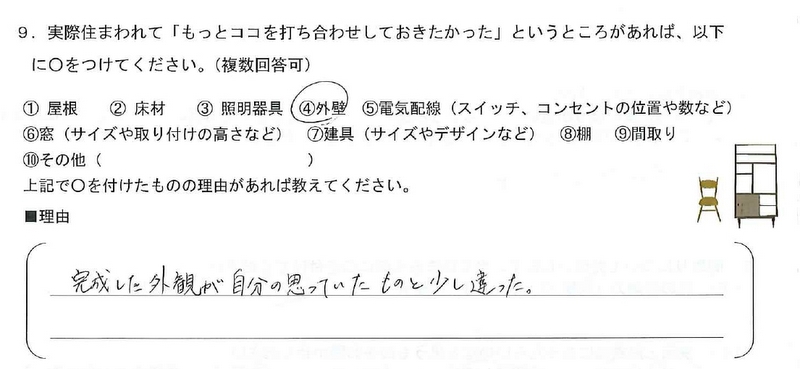 9．実際住まわれて「もっとココを打ち合わせしておきたかった」というところがあれば、以下
に〇をつけてください。（複数回答可）
① 屋根　② 床材　③ 照明器具　④外壁　⑤電気配線（スイッチ、コンセントの位置や数など）
⑥窓（サイズや取り付けの高さなど）　⑦建具（サイズやデザインなど）　⑧棚　⑨間取り
⑩その他（　　　　　　　　　　　　）
上記で〇を付けたものの理由があれば教えてください。
■理由
完成した外観が自分の思っていたものと少し違った。